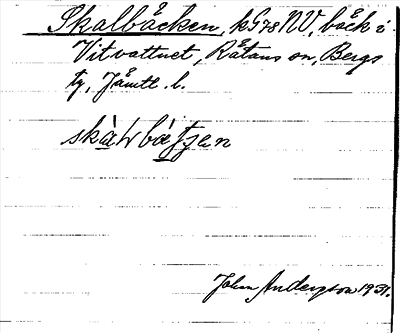 Skalbäcken, k 578 NV, bäck i
Vitvattnet, Rätans sn, Bergs
tg, Jämtl. l.
skàḷbátʃen
John Anderson 1931.